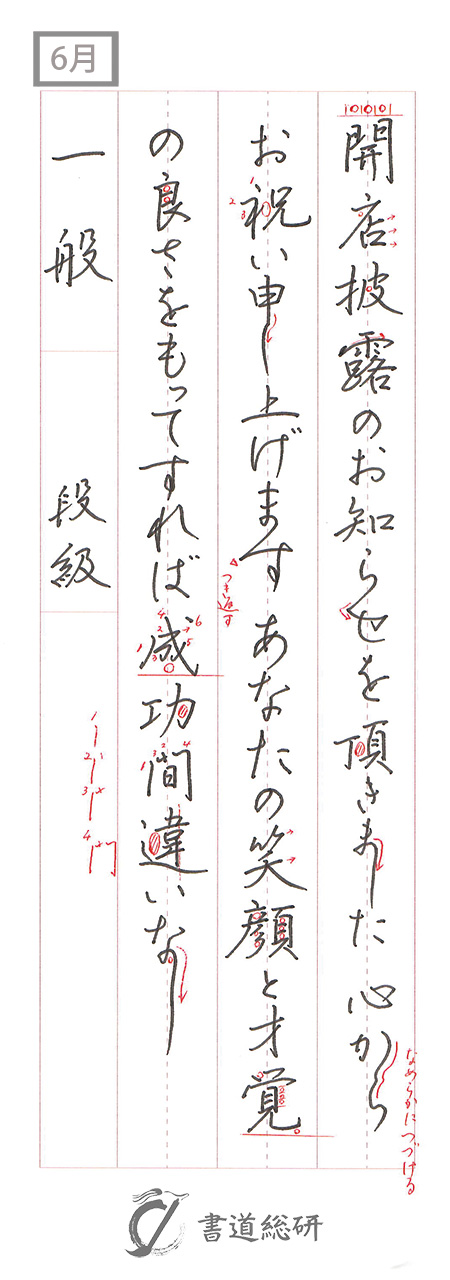 6月
開店披露のお知らせを頂きました 心から
お祝い申し上げます あなたの笑顔と才覚
の良さをもってすれば成功間違いなし
一般 段級
1010101
つき返す
なめらかにつづける
書道総研